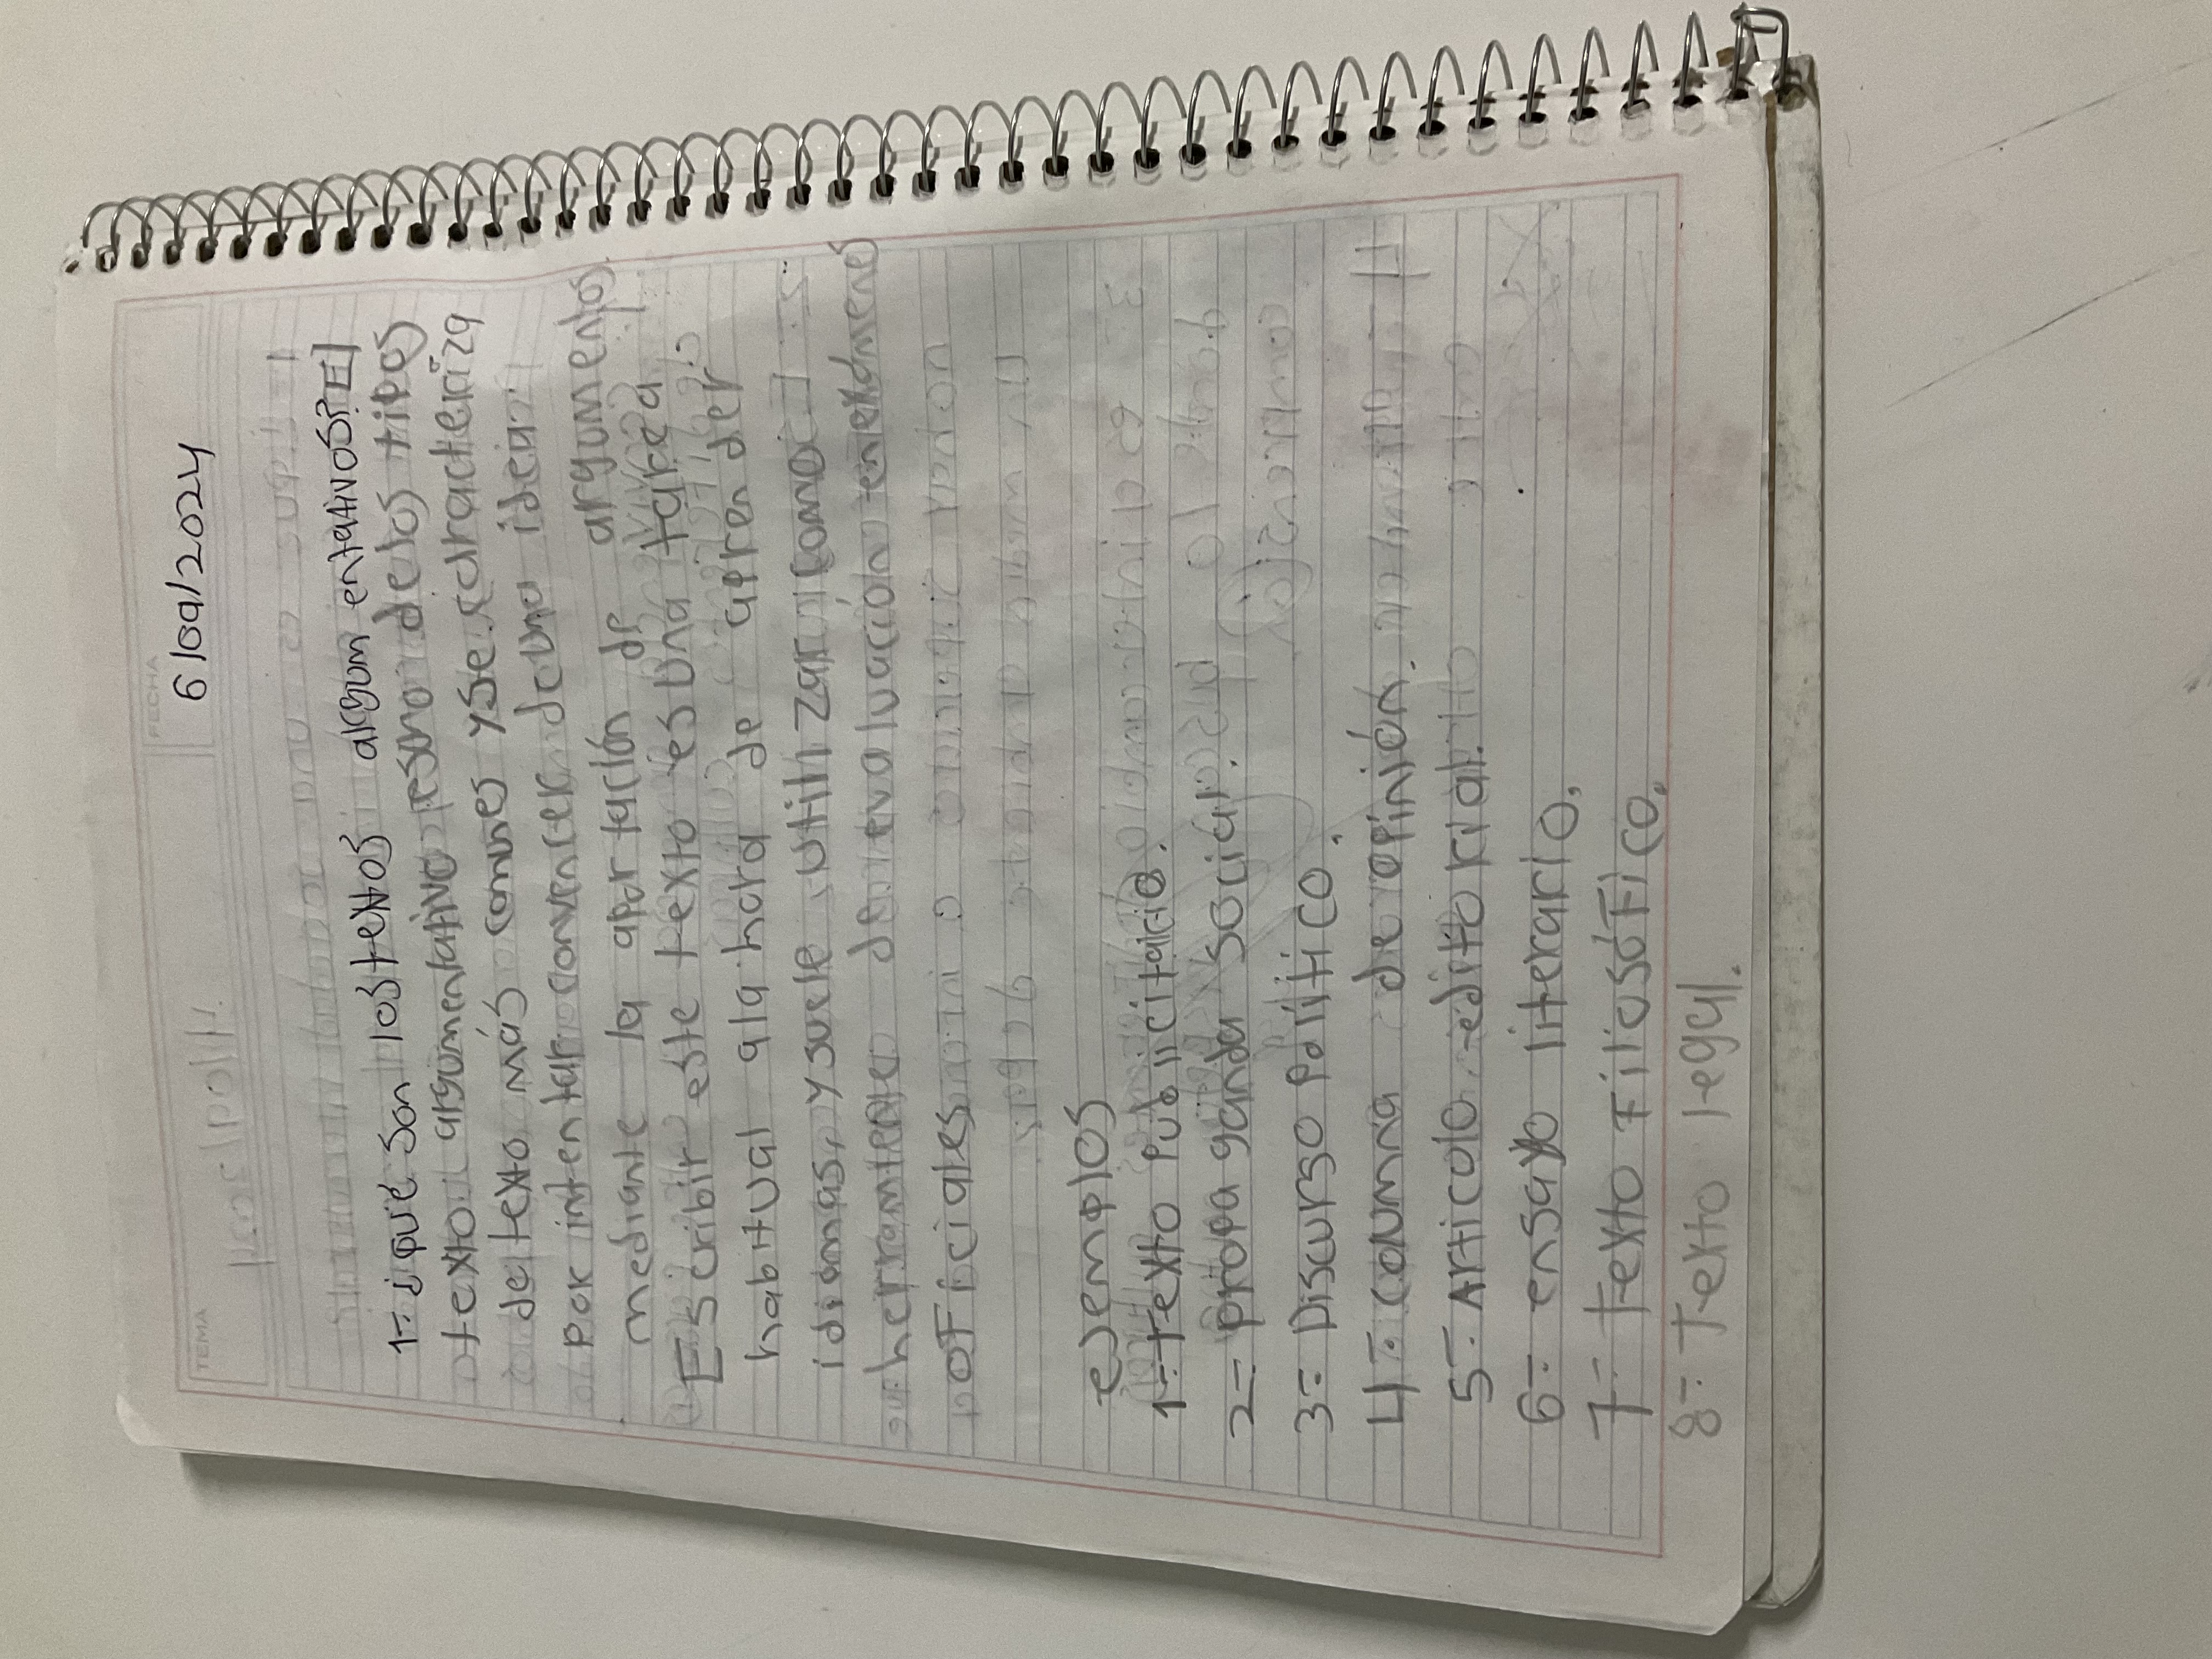 FECHA
6/09/2024
TEMA
1= ¿que son los textos argumentativos? El
texto argumentativo es uno de los tipos
de texto más comunes y se caracteriza
por intentar convencer de una idea
mediante la aportación de argumentos
Escribir este texto es una tarea
habitual a la hora de aprender
idiomas, y suele utilizar como
herramienta de evaluación en exámenes
oficiales
ejemplos
1= texto publicitario.
2= propaganda social.
3= Discurso Político.
4= columna de opinión.
5= Articolo editorial.
6= ensayo literario.
7= Texto Filiosófico.
8= Texto legal.